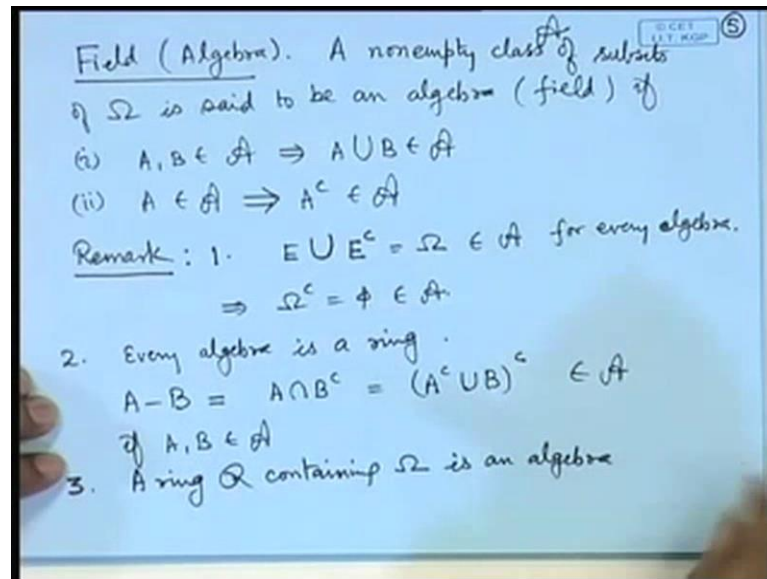 © CET
I.I.T. KGP
5
Field (Algebra). A nonempty class 𝒜 of subsets
of Ω is said to be an algebra (field) if
(i) A, B ∈ 𝒜 ⇒ A ∪ B ∈ 𝒜
(ii) A ∈ 𝒜 ⇒ Aᶜ ∈ 𝒜
Remark : 1. E ∪ Eᶜ = Ω ∈ 𝒜 for every algebra.
⇒ Ωᶜ = ϕ ∈ 𝒜.
2. Every algebra is a ring.
A - B = A ∩ Bᶜ = (Aᶜ ∪ B)ᶜ ∈ 𝒜
if A, B ∈ 𝒜
3. A ring ℛ containing Ω is an algebra